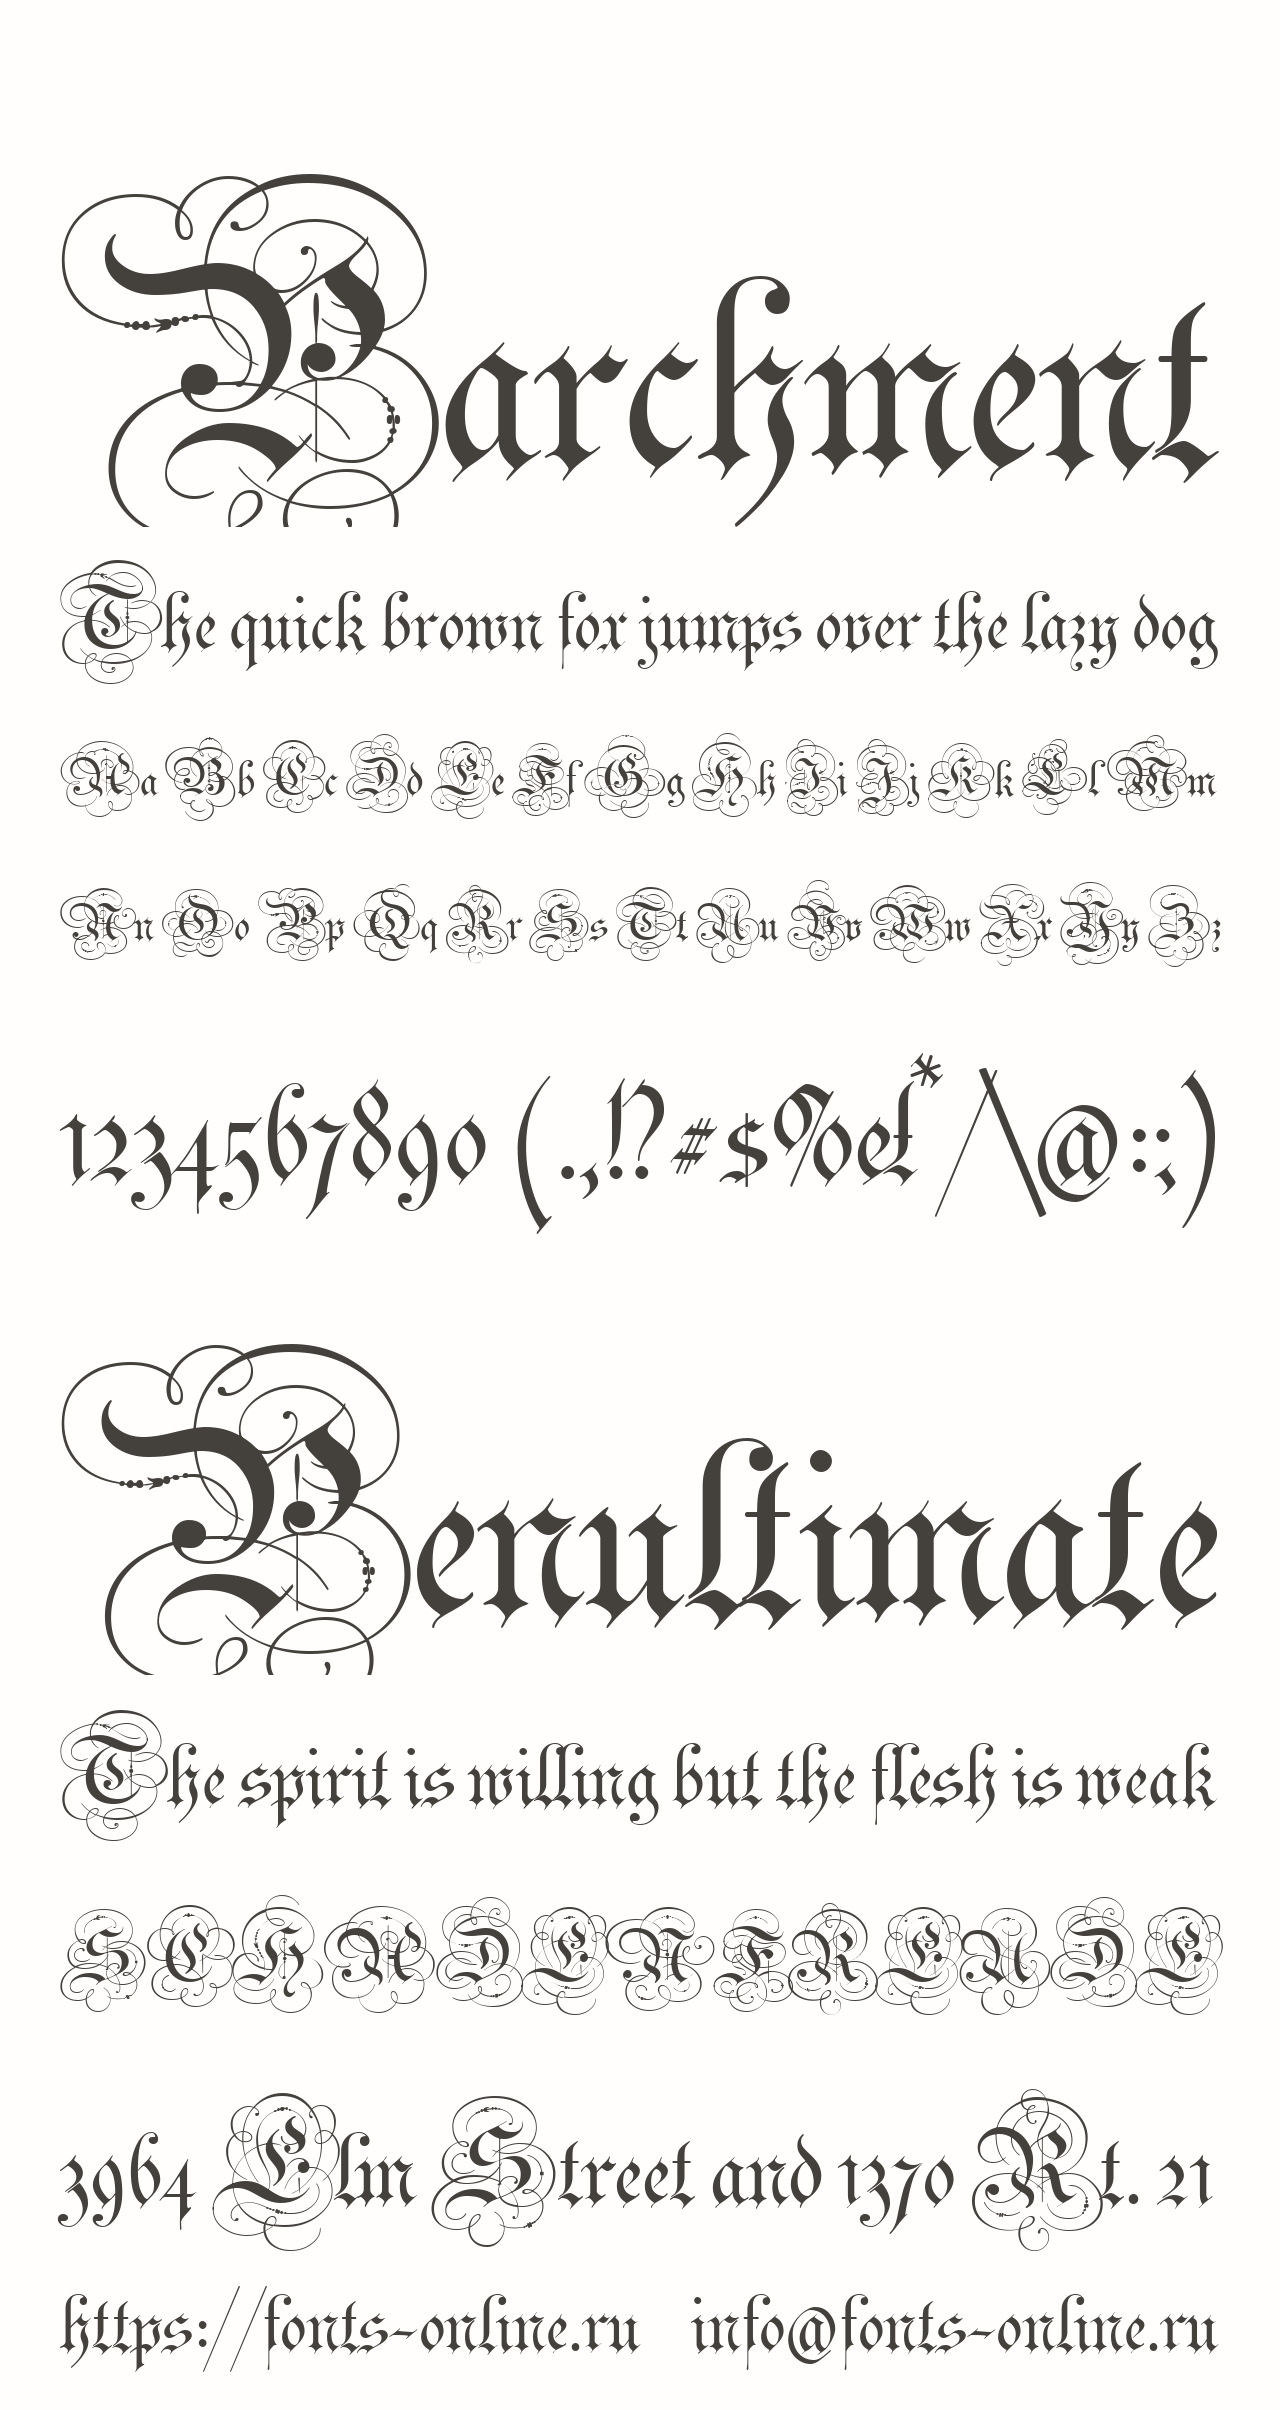 Parchment
The quick brown fox jumps over the lazy dog
Aa Bb Cc Dd Ee Ff Gg Hh Ii Jj Kk Ll Mm
Nn Oo Pp Qq Rr Ss Tt Uu Vv Ww Xx Yy Zz
1234567890 (.,!? #$%&* /\@:;)
Penultimate
The spirit is willing but the flesh is weak
SCHADENFREUDE
3964 Elm Street and 1370 Rt. 21
https://fonts-online.ru info@fonts-online.ru